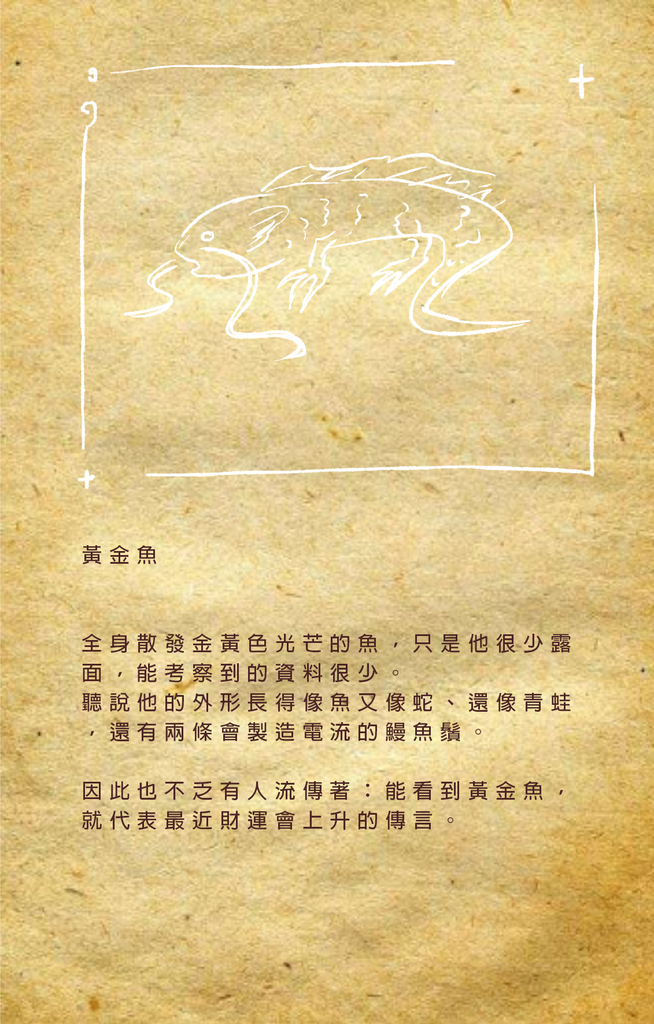 黃金魚
全身散發金黃色光芒的魚，只是他很少露
面，能考察到的資料很少。
聽說他的外形長得像魚又像蛇、還像青蛙
，還有兩條會製造電流的鰻魚鬚。
因此也不乏有人流傳著：能看到黃金魚，
就代表最近財運會上升的傳言。